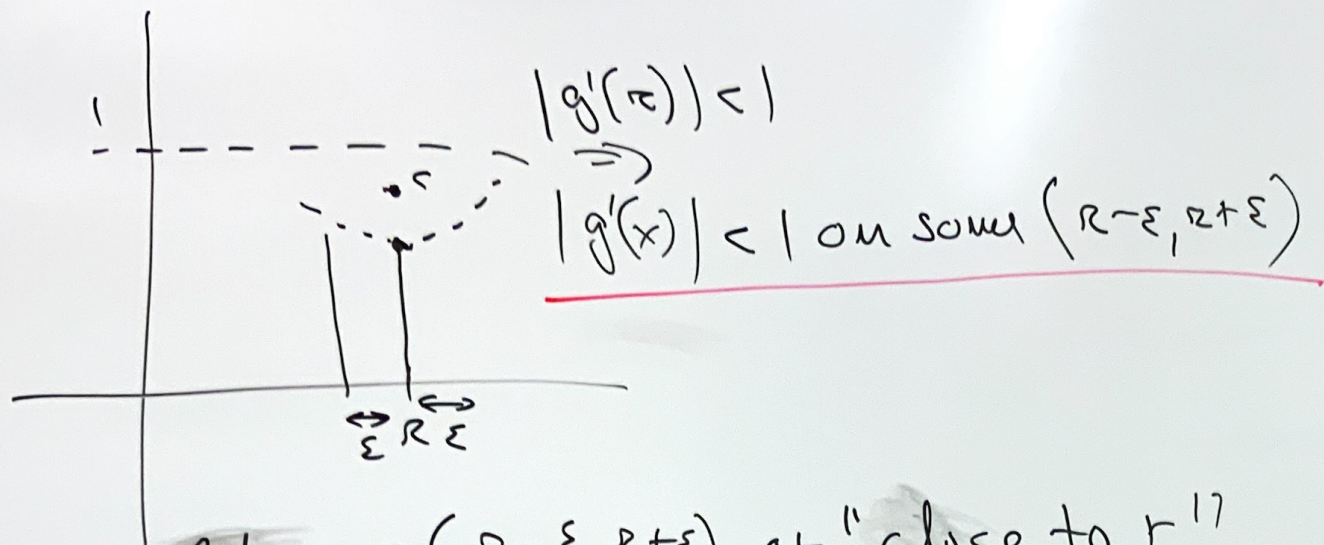 1
|g'(r)| < 1
⇒
|g'(x)| < 1 on some (r-ε, r+ε)
ε R ε
"close to r"